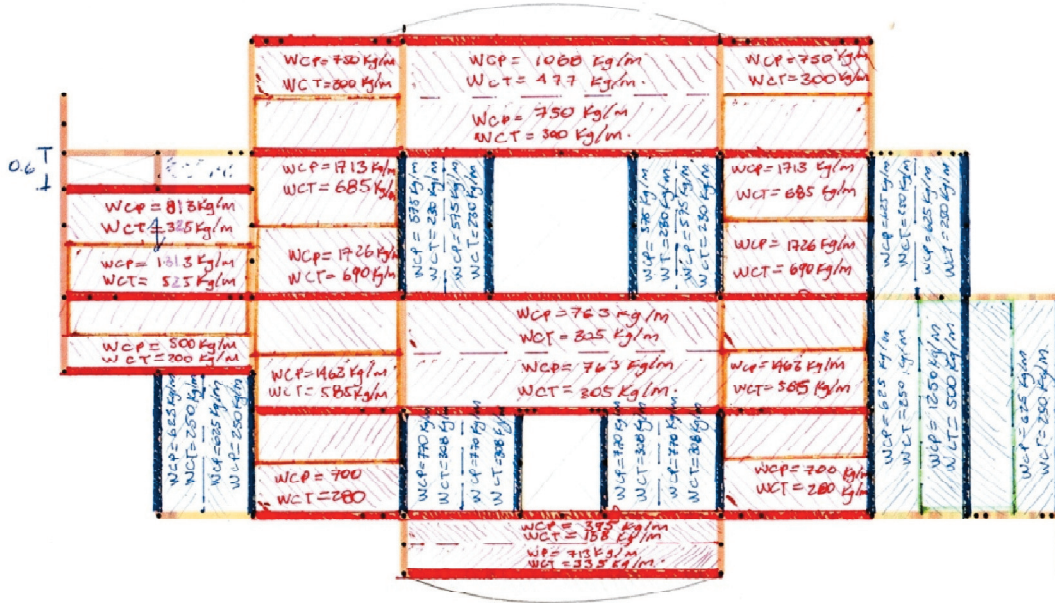 WCP=750 Kg/m
WCT=300 Kg/m
WCP= 1068 Kg/m
WCT= 477 Kg/m.
WCP= 750 Kg/m
WCT= 300 Kg/m.
WCP=750 Kg/m
WCT=300 Kg/m
0.6
WCP=1713 Kg/m
WCT=685 Kg/m
WCP= 575 Kg/m
WCT= 230 Kg/m
WCP= 575 Kg/m
WCT= 230 Kg/m
WCP= 575 Kg/m
WCT= 230 Kg/m
WCP= 575 Kg/m
WCT= 230 Kg/m
WCP=1713 Kg/m
WCT=685 Kg/m
WCP= 625 Kg/m
WCT= 250 Kg/m
WCP= 625 Kg/m
WCT= 250 Kg/m
WCP= 813 Kg/m
WCT= 325 Kg/m
WCP= 1313 Kg/m
WCT= 525 Kg/m
WCP=1726 Kg/m
WCT=690 Kg/m
WCP=1726 Kg/m
WCT=690 Kg/m
WCP= 500 Kg/m
WCT= 200 Kg/m
WCP=763 Kg/m
WCT= 305 Kg/m
WCP= 763 Kg/m
WCT= 305 Kg/m.
WCP=1463 Kg/m
WCT=585 Kg/m
WCP=1463 Kg/m
WCT= 585 Kg/m
WCP= 625 Kg/m
WCT= 250 Kg/m
WCP= 1250 Kg/m
WCT= 500 Kg/m
WCP= 625 Kg/m
WCT= 250 Kg/m
WCP= 625 Kg/m
WCT= 250 Kg/m
WCP= 625 Kg/m
WCP= 250 Kg/m
WCP= 700
WCT=280
WCP=770 Kg/m
WCT=308 Kg/m
WCP=770 Kg/m
WCT=308 Kg/m
WCP=770 Kg/m
WCT=308 Kg/m
WCP=770 Kg/m
WCT=308 Kg/m
WCP = 700 Kg/m
WCT= 280 Kg/m
WCP= 395 Kg/m
WCT= 158 Kg/m
WP= 713 Kg/m
WCT= 335 Kg/m.